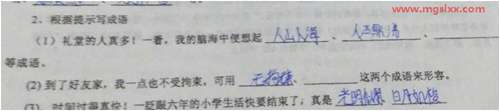 www.mgslxx.com
2、根据提示写成语
（1）礼堂的人真多！一看，我的脑海中便想起 人山人海、人
等成语。
(2) 到了好友家，我一点也不受拘束，可用 无拘 、 这两个成语来形容。
(3) 时间过得真快！一眨眼六年的小学生活快要结束了，真是 光 、日月如梭